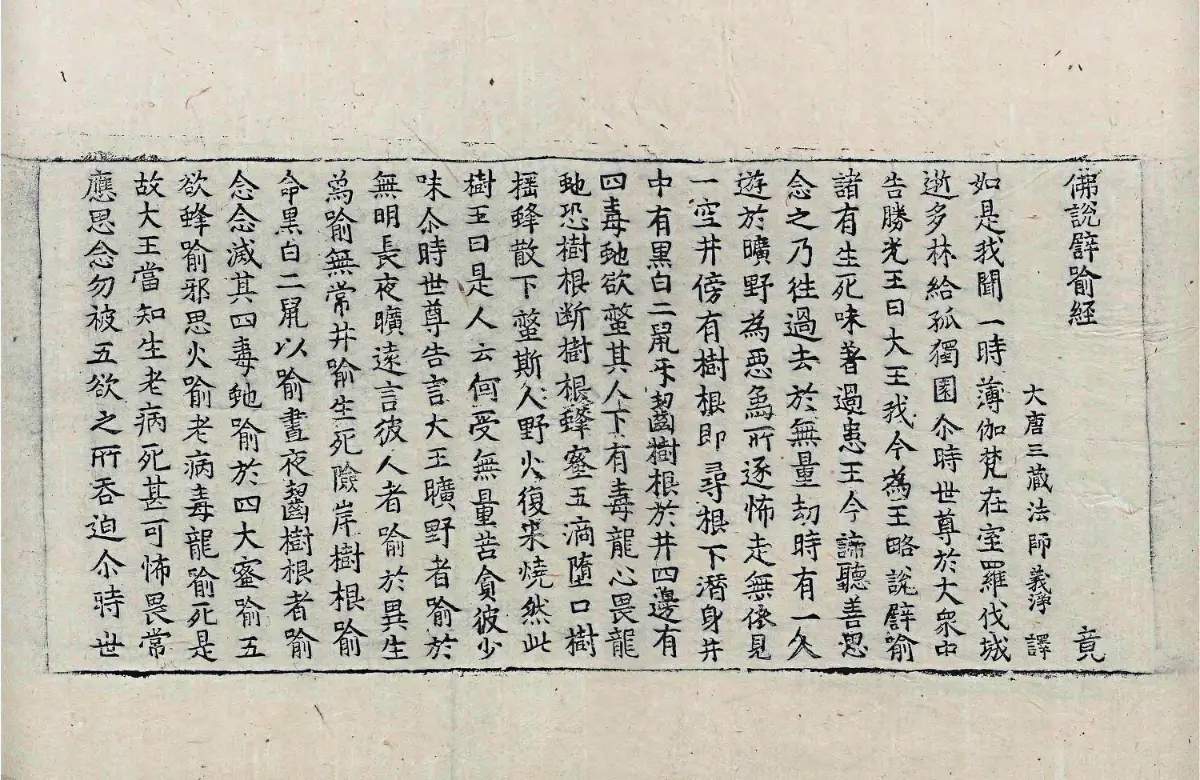 佛說譬喻經 竟
大唐三藏法師義淨 譯
如是我聞一時薄伽梵在室羅伐城
逝多林給孤獨園尒時世尊於大衆中
告勝光王曰大王我今為王略說譬喻
諸有生死味著過患王今諦聽善思
念之乃往過去於無量劫時有一人
遊於曠野為惡象所逐怖走無依見
一空井傍有樹根即尋根下潛身井
中有黑白二鼠牙齧樹根於井四邊有
四毒虵欲螫其人下有毒龍心畏龍
虵恐樹根断樹根蜂蜜五滴墮口樹
揺蜂散下螫斯人野火復来燒然此
樹王曰是人云何受無量苦貪彼少
味尒時世尊告言大王曠野者喻於
無明長夜曠遠言彼人者喻於異生
為喻無常井喻生死險岸樹根喻
命黑白二鼠以喻晝夜齧樹根者喻
念念滅其四毒虵喻於四大蜜喻五
欲蜂喻邪思火喻老病毒龍喻死是
故大王當知生老病死甚可怖畏常
應思念勿被五欲之所吞迫尒時世